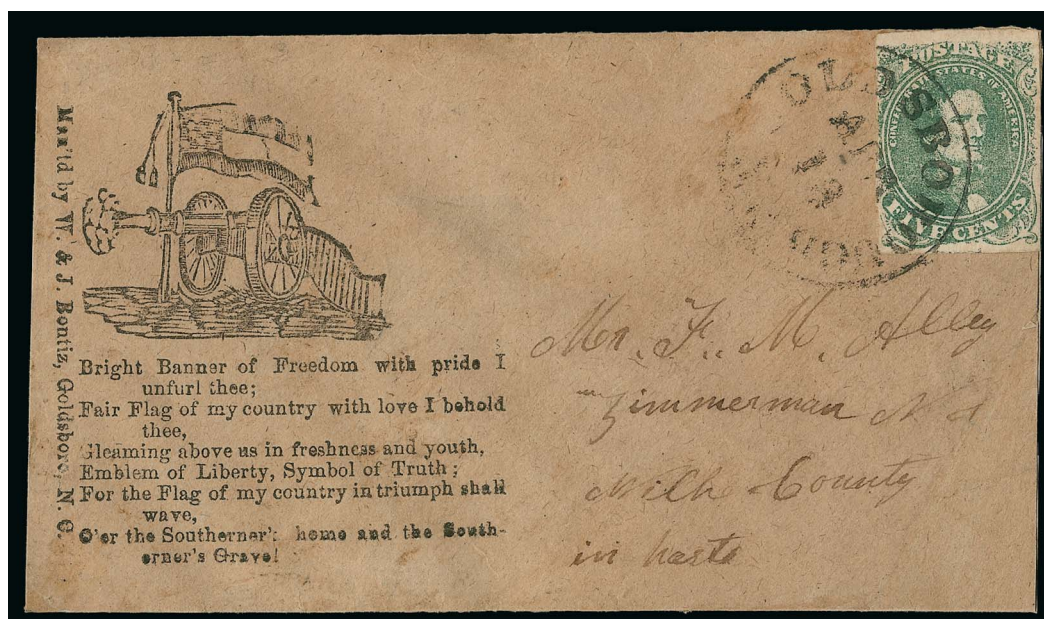 Man'fd by W. & J. Bontiz, Goldsboro, N. C.
Bright Banner of Freedom with pride I
unfurl thee;
Fair Flag of my country with love I behold
thee,
Gleaming above us in freshness and youth,
Emblem of Liberty, Symbol of Truth;
For the Flag of my country in triumph shall
wave,
O'er the Southerner's home and the South-
erner's Grave!
OLDSBORO
POSTAGE
CONFEDERATE STATES OF AMERICA
FIVE CENTS
Mr. F. M. Alley
Zimmerman
County
in haste